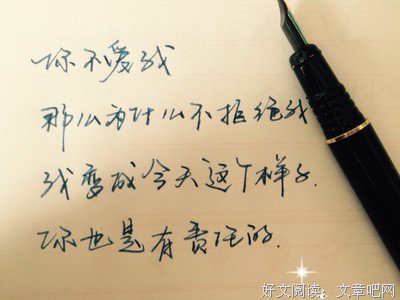 你不爱我
那么为什么不拒绝我
我变成今天这个样子.
你也是有责任的.
好文阅读:文章吧网